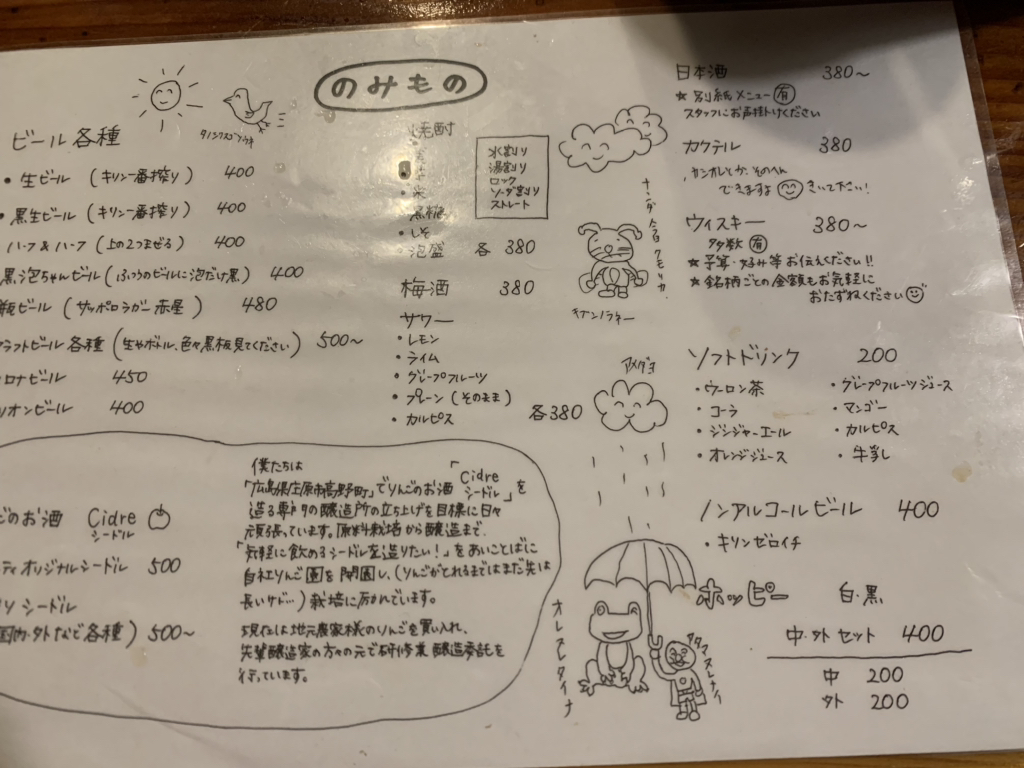 のみもの
ビール各種
・生ビール (キリン一番搾り) 400
・黒生ビール (キリン一番搾り) 400
ハーフ&ハーフ (上の2つまぜる) 400
黒泡ちゃんビール (ふつうのビールに泡だけ黒) 400
瓶ビール (サッポロラガー赤星) 480
ラフトビール各種 (生やボトル、色々黒板見てください) 500〜
ロナビール 450
リオンビール 400
焼酎
・米
・黒糖
・しそ
・泡盛 各380
水割り
湯割り
ロック
ソーダ割り
ストレート
梅酒 380
サワー
・レモン
・ライム
・グレープフルーツ
・プレーン (そのまま)
・カルピス 各380
日本酒 380〜
★別紙メニュー有
スタッフにお声掛けください
カクテル 380
カシオレとか、そのへん
できますよ きいて下さい!
ウィスキー 380〜
多数有
★予算・好み等お伝えください!!
★銘柄ごとの金額もお気軽に
おたずねください
ソフトドリンク 200
・ウーロン茶
・コーラ
・ジンジャーエール
・オレンジジュース
・グレープフルーツジュース
・マンゴー
・カルピス
・牛乳
ノンアルコールビール 400
・キリンゼロイチ
ホッピー 白・黒
中・外セット 400
中 200
外 200
アメダヨ
オレスレタイナ
ごのお酒 Cidre
シードル
ティオリジナルシードル 500
シードル
国内・外など各種) 500〜
僕たちは
「広島県庄原市高野町」でりんごのお酒「Cidre シードル」を
造る専門の醸造所の立ち上げを目標に日々
頑張っています。原料栽培から醸造まで、
「気軽に飲めるシードルを造りたい!」をあいことばに
自社りんご園を開園し、(りんごがとれるまではまだ先は
長いケド…) 栽培に励んでいます。
現在は地元農家様のりんごを買い入れ、
先輩醸造家の方々の元で研修兼醸造委託を
行っています。